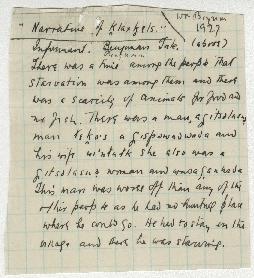 Wm Beynon
1927
"Narrative of Klaxkels."
Informant. Benjman Tak. (above)
There was a time among the people that
starvation was among them and there
was a scarcity of animals for food and
no fish. There was a man, a gitsdasu
man a gispawadwada and
his wife she also was a
woman and
This man was worse off than any of the
other people as he had no hunting place
where he could go. He had to stay in the
village and here he was starving.